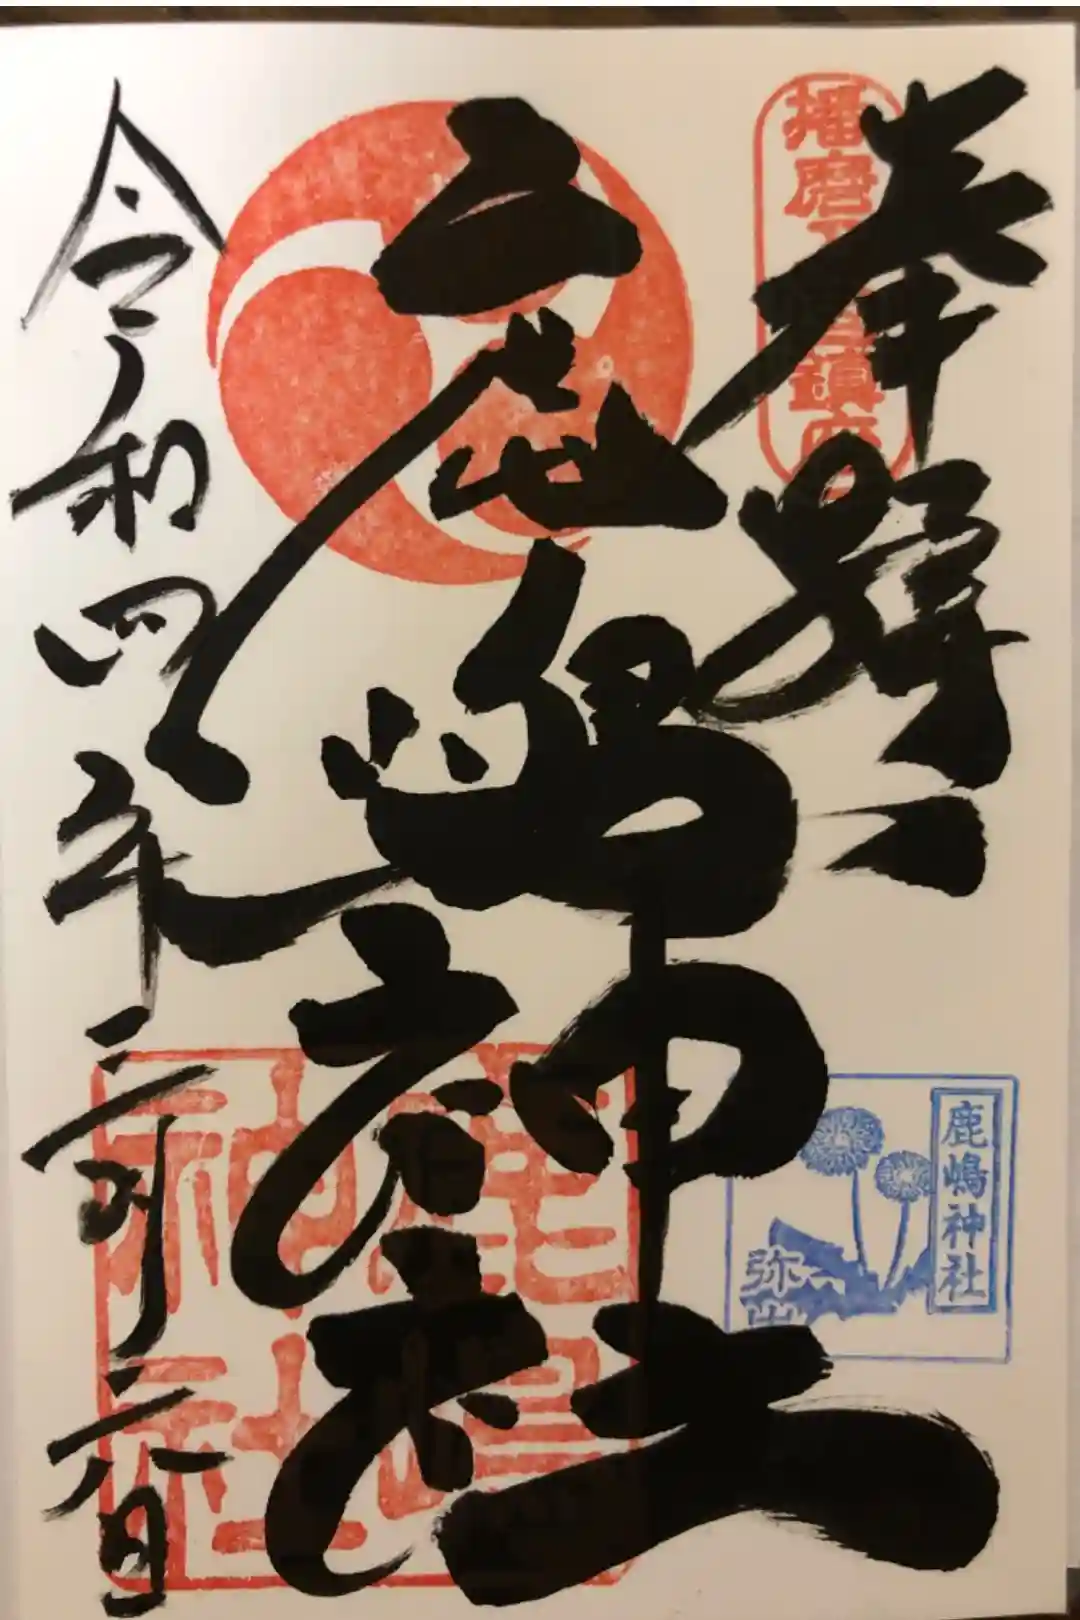 奉拝
播磨
鎮座
鹿嶋神社
鹿嶋神社
弥
鹿嶋神社
令和四年二月二六日